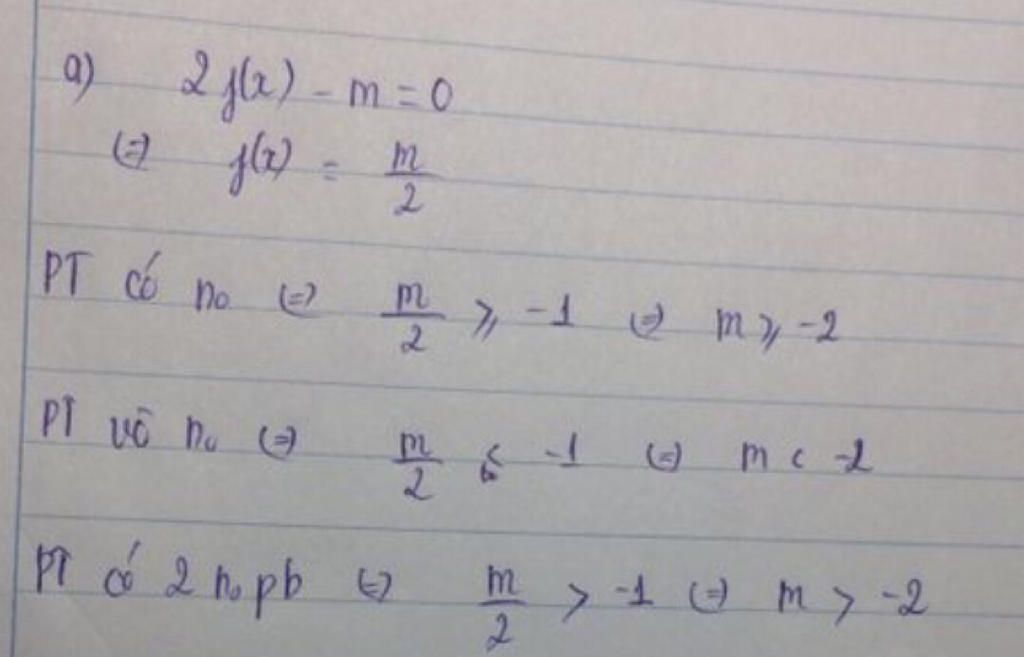 a) 2f(x) - m = 0
(=) f(x) = m/2
PT có no (=) m/2 ≥ -1 (=) m ≥ -2
PT vô no (=) m/2 < -1 (=) m < -2
PT có 2 no pb (=) m/2 > -1 (=) m > -2